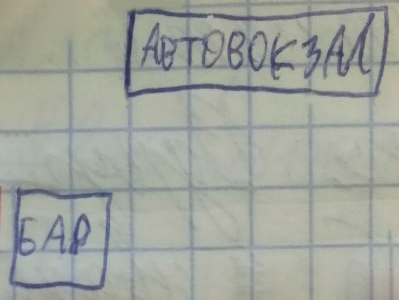 АВТОВОКЗАЛ
БАР